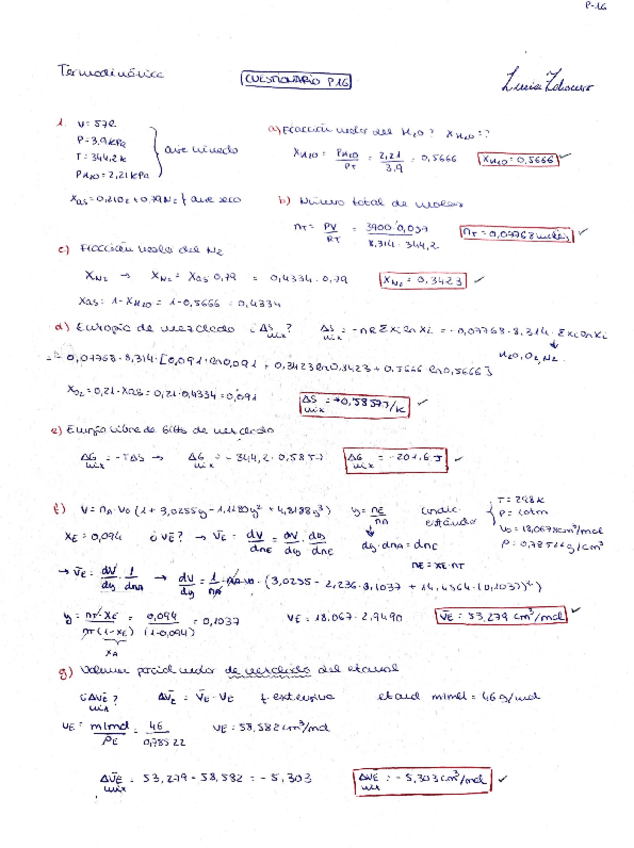 P-16
Termodinámica
CUESTIONARIO P16
1. V = 57l
P = 3,9 kPa
T = 344,2 K
P H2O = 2,21 kPa
aire húmedo
a) Fracción molar del H2O? X H2O = ?
X H2O = P H2O / PT = 2,21 / 3,9 = 0,5666 X H2O = 0,5666 ✓
XAS = 0,21 O2 + 0,79 N2 } aire seco
b) Número total de moles
nT = PV / RT = 3900 · 0,057 / 8,314 · 344,2 nT = 0,07768 moles ✓
c) Fracción molar del N2
XN2 → XN2 = XAS · 0,79 = 0,4334 · 0,79 XN2 = 0,3423 ✓
XAS = 1 - XH2O = 1 - 0,5666 = 0,4334
d) Entropía de mezclado ¿ΔS mix? ΔS mix = -nR Σxi ln xi = -0,07768 · 8,314 · Σxi ln xi
H2O, O2, N2
= - 0,07768 · 8,314 · [0,091 · ln 0,091 + 0,3423 ln 0,3423 + 0,5666 ln 0,5666]
XO2 = 0,21 · XAS = 0,21 · 0,4334 = 0,091 ΔS mix = +0,5857 J/K ✓
e) Energía libre de Gibbs de mezclado
ΔG mix = -TΔS → ΔG mix = -344,2 · 0,5857 ΔG mix = -201,6 J ✓
f) V = nA · V0 (1 + 3,0255y - 1,1180y² + 4,8188y³) y = nE / nA condic. estándar { T = 298 K
P = 1 atm
V0 = 18,067 cm³/mol
ρ = 0,78522 g/cm³
XE = 0,094 ¿V̄E? → V̄E = dV / dnE = dV / dy · dy / dnE dy · dnA = dnE
nE = XE · nT
→ V̄E = dV / dy · 1 / dnA → dV / dy = 1 / nA · nA · V0 · (3,0255 - 2,236 · 0,1037 + 14,4564 · (0,1037)²)
y = nT · XE / nT (1 - XE) = 0,094 / (1 - 0,094) = 0,1037 VE = 18,067 · 2,9490 V̄E = 53,279 cm³/mol ✓
XA
g) Volumen parcial molar de mezclado del etanol
¿ΔV̄E mix? ΔV̄E = V̄E - VE f. extensiva etanol m/mol = 46 g/mol
VE = m/mol / ρE = 46 / 0,78522 VE = 58,582 cm³/mol
ΔV̄E mix = 53,279 - 58,582 = -5,303 ΔV̄E mix = -5,303 cm³/mol ✓